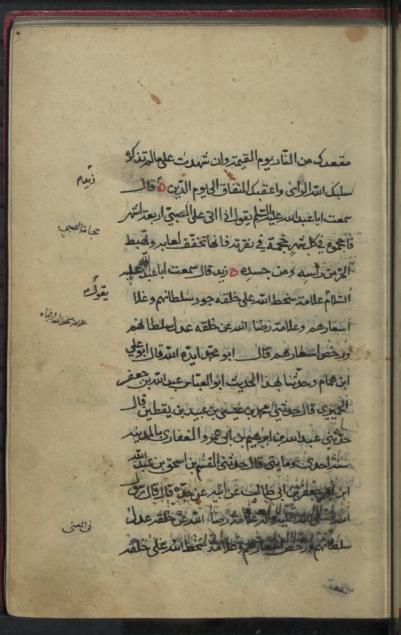 مقعدك من النار يوم القيمة وان شهدت على ما لم تذكره
سلبك الله الراى واعقبك النفاق الى يوم الدين قال
سمعت ابا عبد الله عليه السلم يقول اذا اتى على الصبى اربعة اشهر
فاحجموه فى كل شهر حجمة فى نقرته فانها تخفف لعابه وتهبط
الحر من راسه ومن جسده زيد قال سمعت ابا عبد الله عليه
السلام علامة سخط الله على خلقه جور سلطانهم وغلا
اسعارهم وعلامة رضاء الله عن خلقه عدل سلطانهم
ورخص اسعارهم قال ابو محمد ايده الله قال ابو على
ابن همام وحدثنا بهذا الحديث ابو العباس عبد الله بن جعفر
الحميرى قال حدثنى محمد بن عيسى بن عبيد بن يقطين قال
حدثنى عبد الله بن ابرهيم بن ابى عمرو الغفارى بالمدينة
سنة احدى ومايتى قال حدثنى القسم بن اسحق بن عبد الله
ابن جعفر بن ابى طالب عن ابيه عن جده قال قال رسول
الله صلى الله عليه واله علامة رضاء الله عن خلقه عدل
سلطانهم ورخص اسعارهم وعلامة سخط الله على خلقه
زيد
حجامة الصبى
يقول
علامة سخط الله ورضاه
فى المعنى